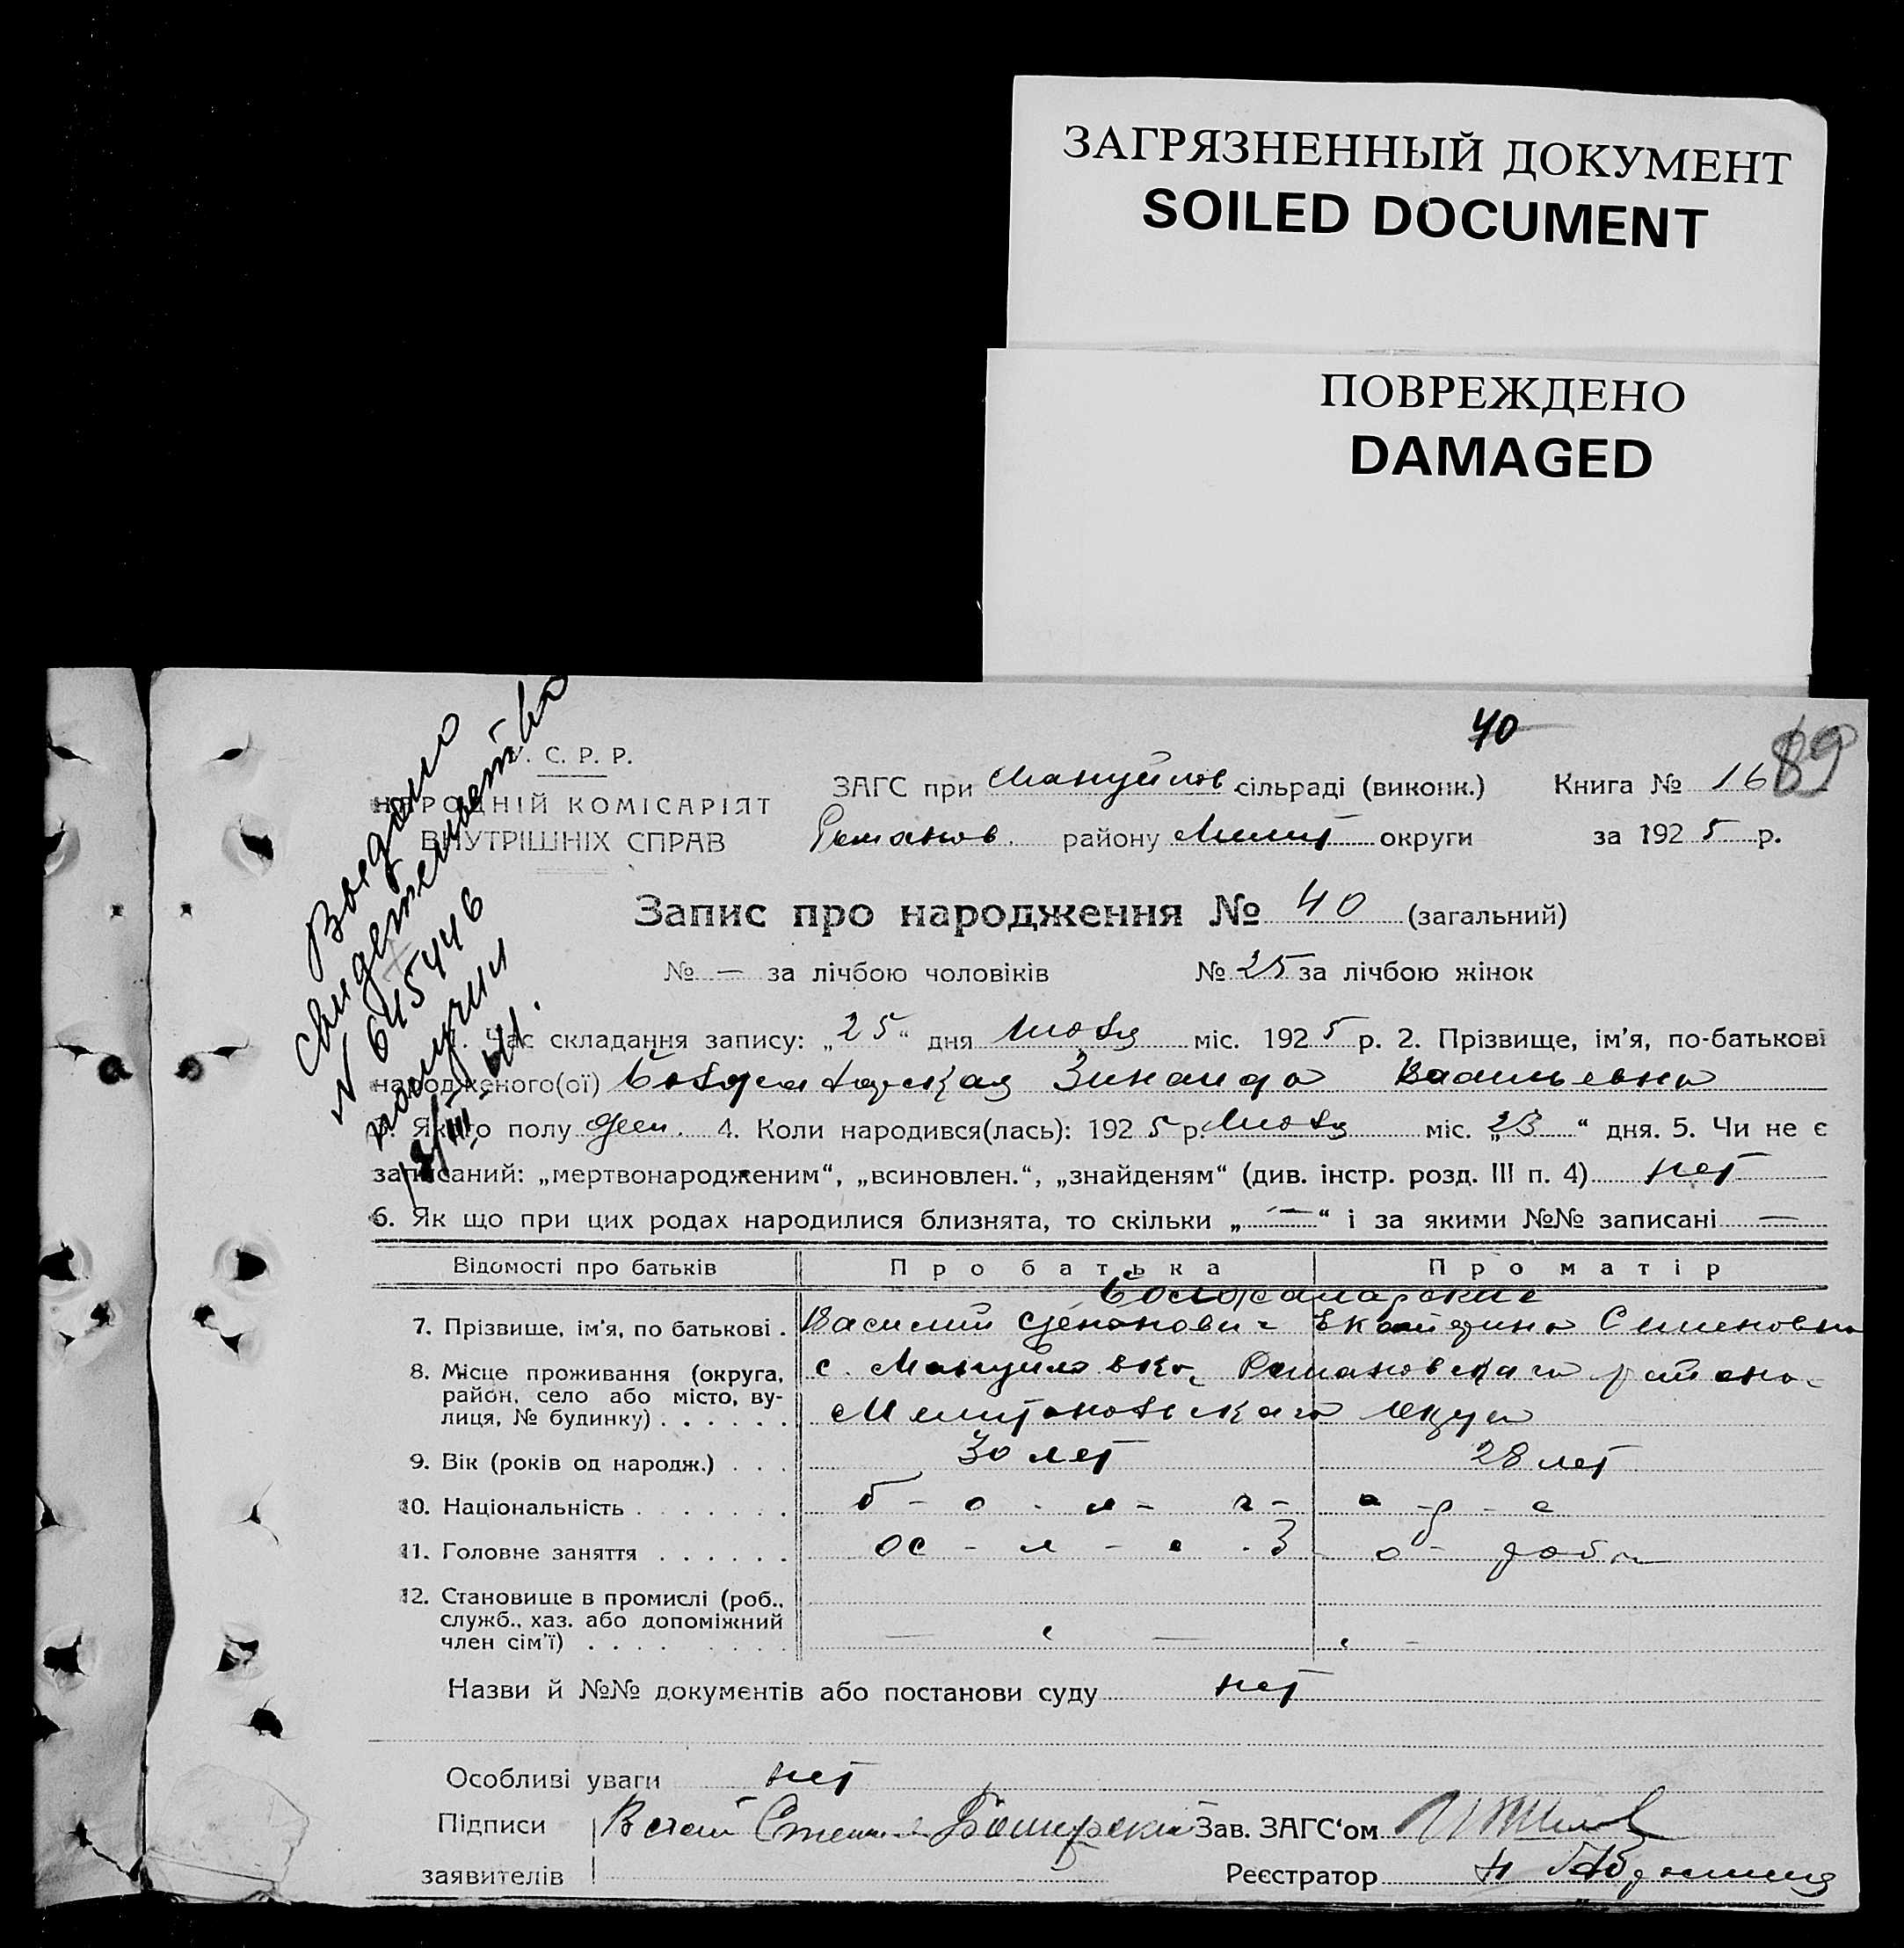 ЗАГРЯЗНЕННЫЙ ДОКУМЕНТ
SOILED DOCUMENT
ПОВРЕЖДЕНО
DAMAGED
40
89
Выдано
свидетельство
N 645446
получил
У. С. Р. Р.
НАРОДНІЙ КОМІСАРІЯТ
ВНУТРІШНІХ СПРАВ
ЗАГС при Мануйлов сільраді (виконк.) Книга № 16
Романов. району Мелит округи за 1925 р.
Запис про народження № 40 (загальний)
№ — за лічбою чоловіків № 25 за лічбою жінок
1. Час складання запису: „25“ дня міс. 1925 р. 2. Прізвище, ім'я, по-батькові
народженого(ої) Зинаида Васильевна
3. Якого полу жен. 4. Коли народився(лась): 1925 р. міс. „23“ дня. 5. Чи не є
записаний: „мертвонародженим“, „всиновлен.“, „знайденям“ (див. інстр. розд. III п. 4) нет
6. Як що при цих родах народилися близнята, то скільки „—“ і за якими №№ записані —
Відомості про батьків Про батька Про матір
7. Прізвище, ім'я, по батькові . Василий Екатерина Семеновна
8. Місце проживання (округа, с. Мануйловка, Романовского района
район, село або місто, ву-
лиця, № будинку) . . . . . . Мелитопольского округа
9. Вік (років од народж.) . . . 30 лет 28 лет
10. Національність . . . . . . . б - о - л - г - а - р - е
11. Головне заняття . . . . . .
12. Становище в промислі (роб.,
служб., хаз. або допоміжний
член сім'ї) . . . . . . . —
Назви й №№ документів або постанови суду нет
Особливі уваги нет
Підписи Зав. ЗАГС'ом
заявителів Реєстратор